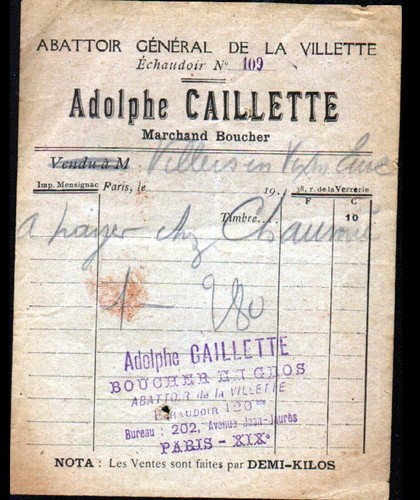 ABATTOIR GÉNÉRAL DE LA VILLETTE
Échaudoir N° 109
Adolphe CAILLETTE
Marchand Boucher
Vendu à M Villers en
Imp. Mensignac Paris, le 19 38, r. de la Verrerie
F C
Timbre... 10
a payer chez Chaumié
1 — 280
Adolphe CAILLETTE
BOUCHER EN GROS
ABATTOIR de la VILLETTE
ECHAUDOIR 120
Bureau : 202, Avenue Jean-Jaurès
PARIS - XIX°
NOTA : Les Ventes sont faites par DEMI-KILOS